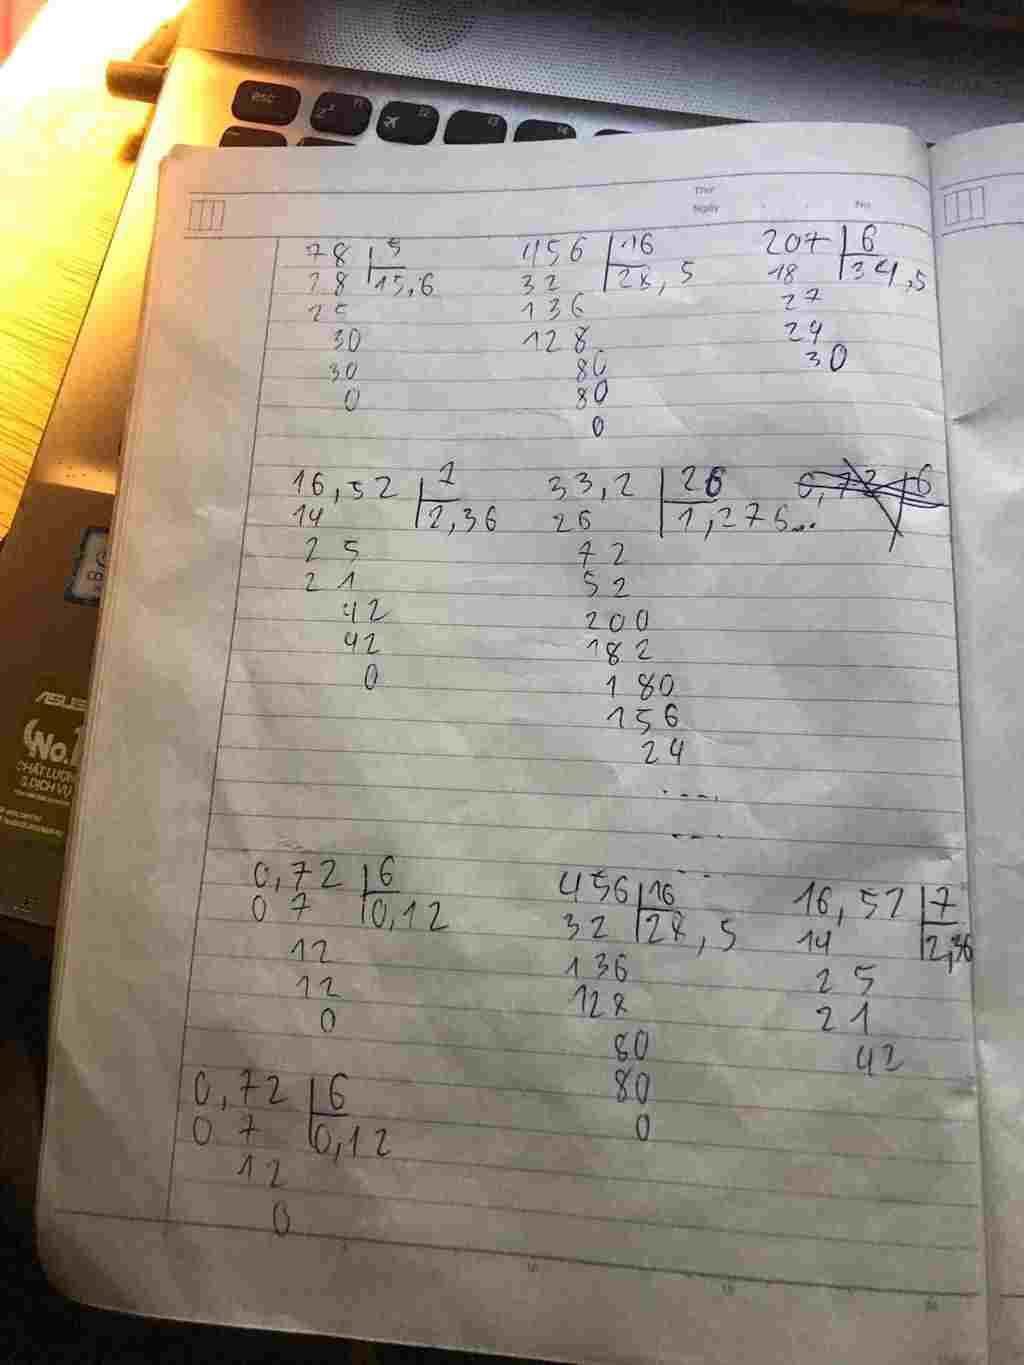 esc
Thứ
Ngày
No.
78 5 456 16 207 6
28 15,6 32 28,5 18 34,5
25 136 27
30 128 24
30 80 30
0 80
0
16,52 7 33,2 26
14 2,36 26 1,276...
25 72
21 52
42 200
42 182
0 180
156
24
....
....
...
0,72 6 456 16 16,52 7
07 0,12 32 28,5 14 2,36
12 136 25
12 128 21
0 80 42
80
0
0,72 6
07 0,12
12
0
ASUS
No.1
CHẤT LƯỢNG
& DỊCH VỤ